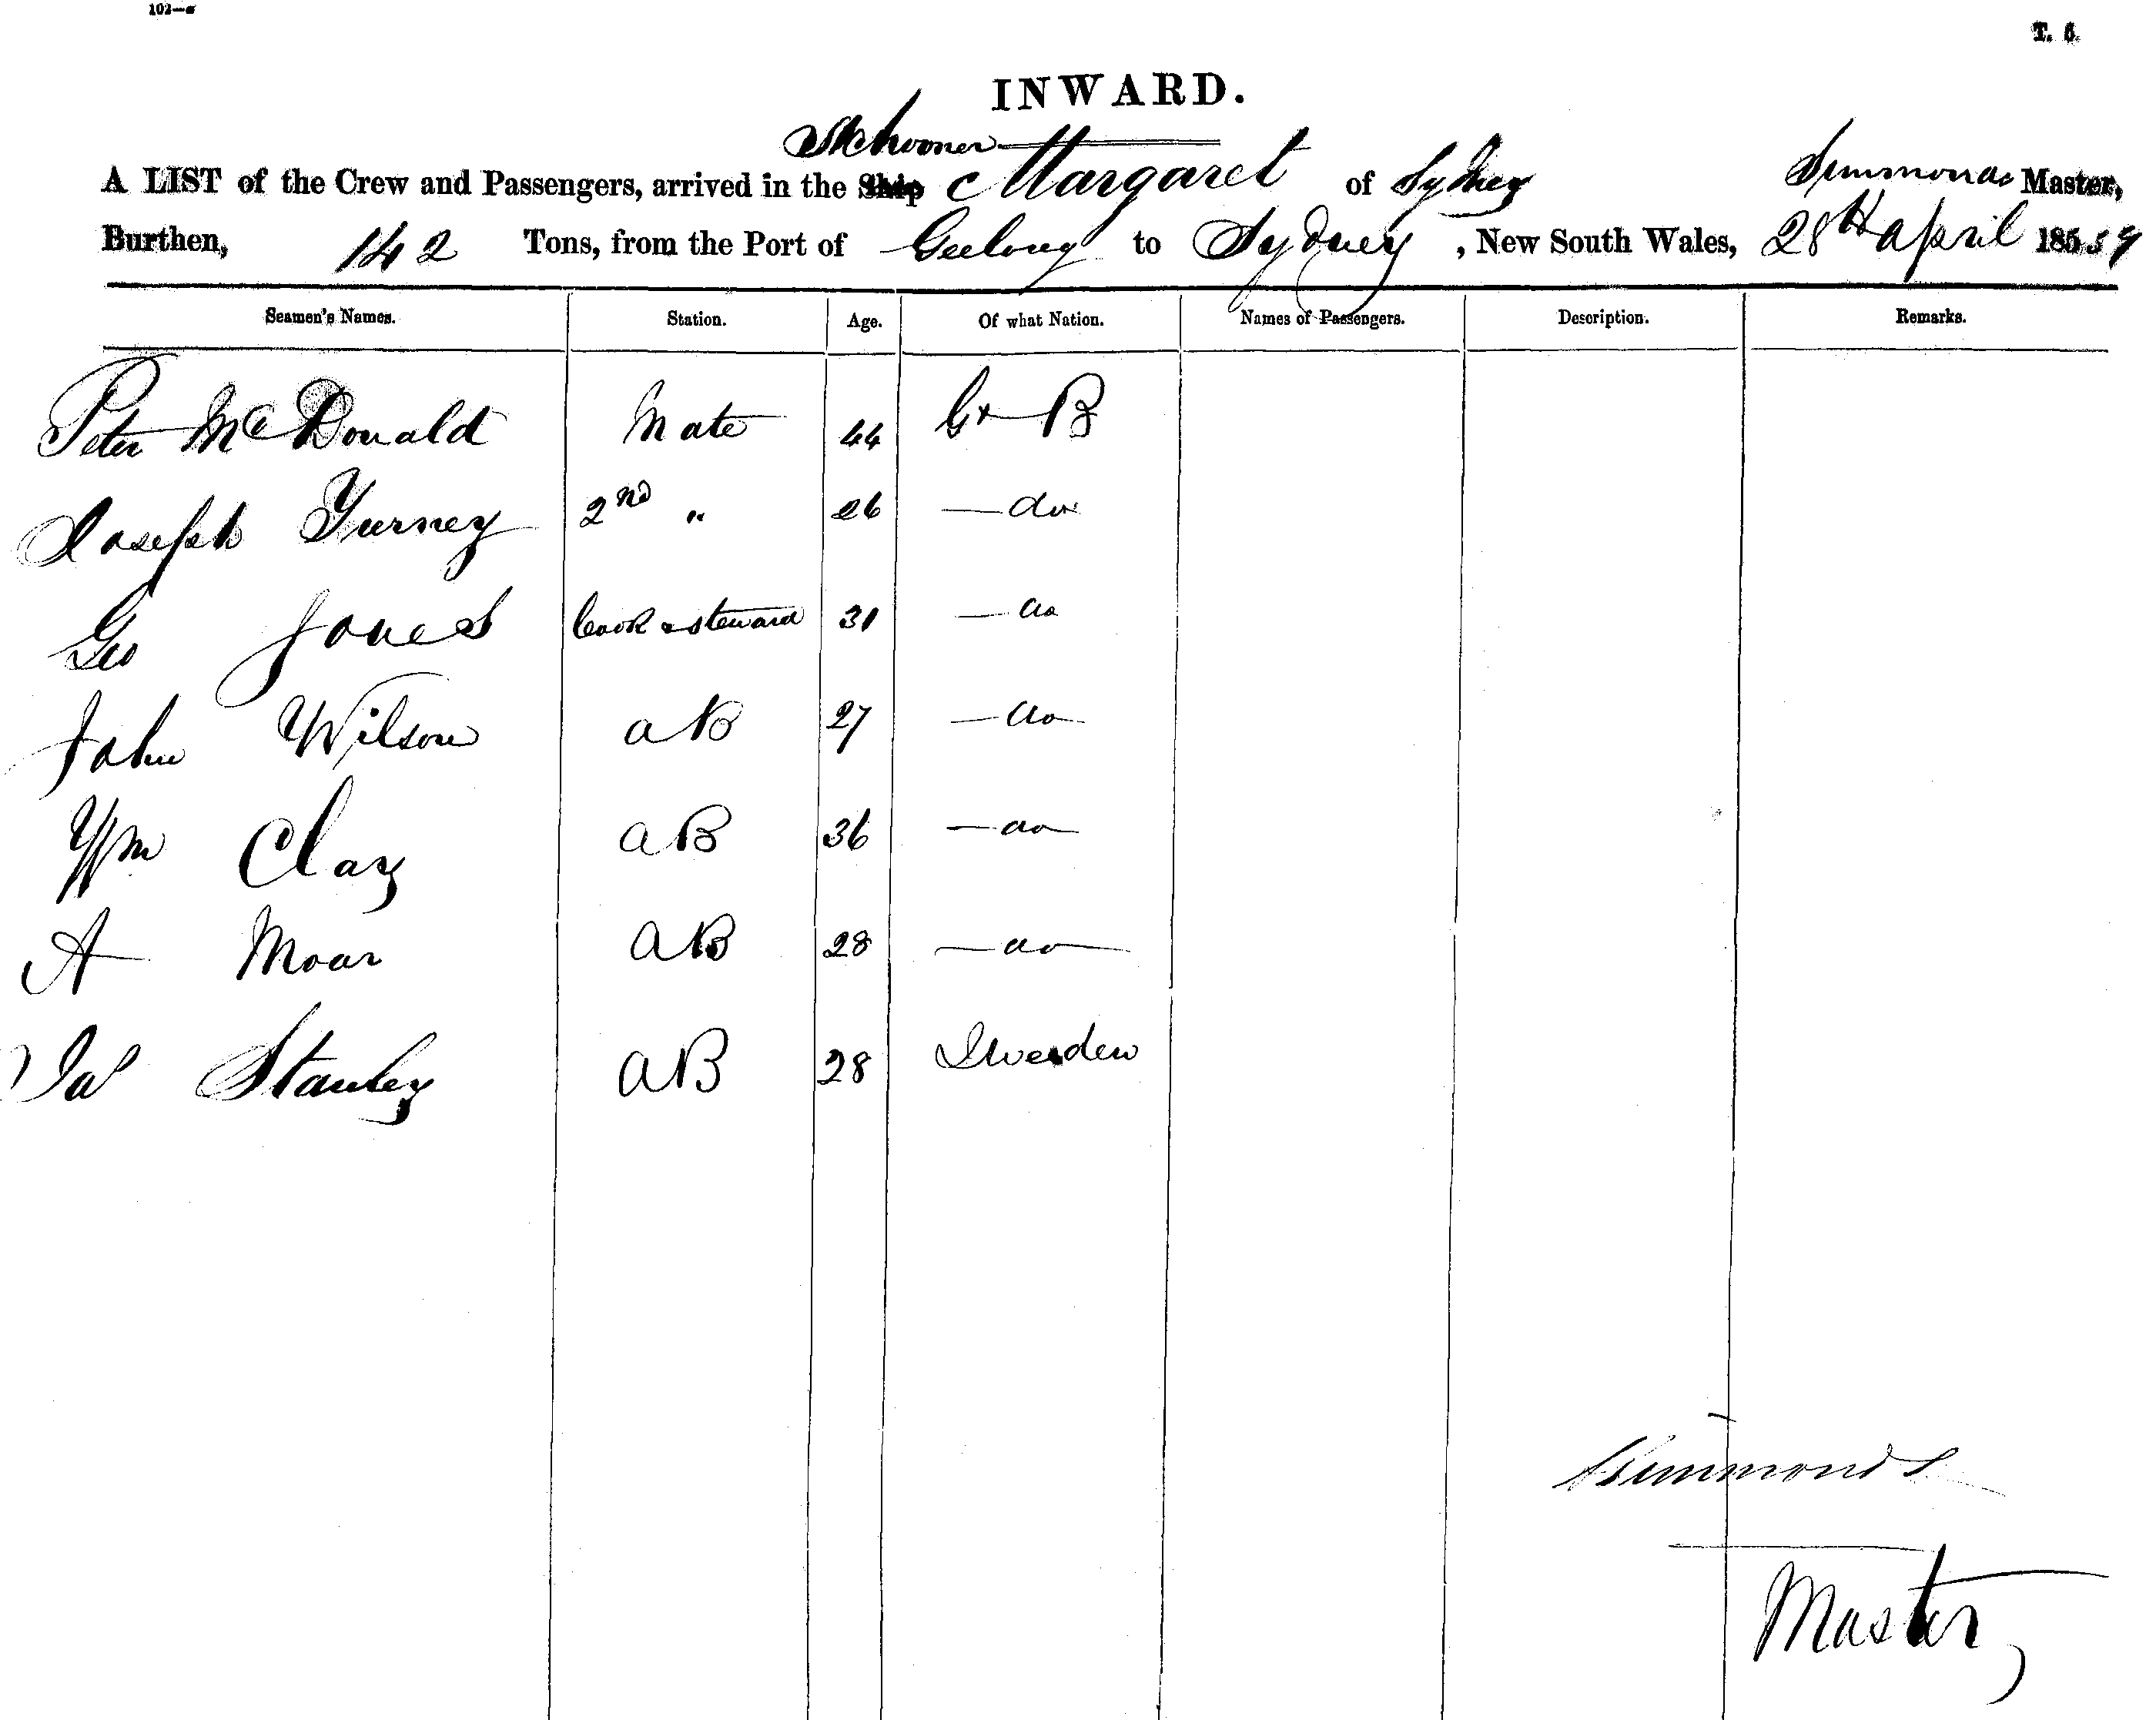 102—a
T. 6.
INWARD.
Schooner
A LIST of the Crew and Passengers, arrived in the Ship Margaret of Sydney Simmonds Master,
Burthen, 142 Tons, from the Port of Geelong to Sydney, New South Wales, 28th April 185 59
Seamen's Names. Station. Age. Of what Nation. Names of Passengers. Description. Remarks.
Peter McDonald Mate 44 Gt B
Joseph Gurney 2nd " 26 — do
Geo Jones Cook & Steward 31 — do
John Wilson AB 27 — do —
Wm Clay AB 36 — do —
A Moar AB 28 — do —
Jas Stanley AB 28 Sweden
Simmonds
Master